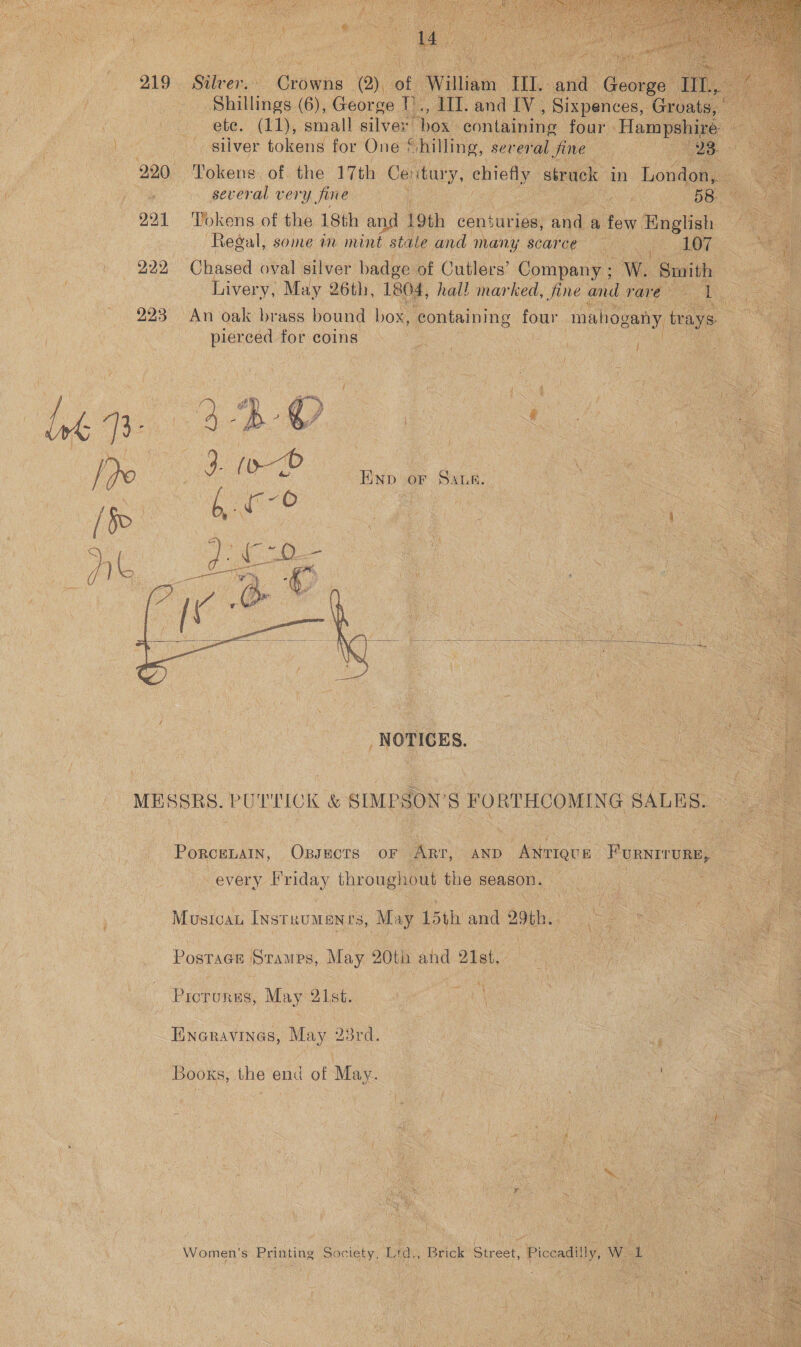 14
219 Silver. Crowns (2) of William III. and George III.,
Shillings (6), George II., III. and IV, Sixpences, Groats,
etc. (11), small silver box containing four Hampshire
silver tokens for One Shilling, several fine 23
220 Tokens of the 17th Century, chiefly struck in London,
several very fine 58
221 Tokens of the 18th and 19th centuries, and a few English
Regal, some in mint state and many scarce 107
222 Chased oval silver badge of Cutlers' Company; W. Smith
Livery, May 26th, 1804, hall marked, fine and rare 1
223 An oak brass bound box, containing four mahogany trays
pierced for coins
Lot 73-
3. 10-0
END OF SALE.
6. 5-0
NOTICES.
MESSRS. PUTTICK & SIMPSON'S FORTHCOMING SALES.
PORCELAIN, OBJECTS OF ART, AND ANTIQUE FURNITURE,
every Friday throughout the season.
MUSICAL INSTRUMENTS, May 15th and 29th.
POSTAGE STAMPS, May 20th and 21st.
PICTURES, May 21st.
ENGRAVINGS, May 23rd.
BOOKS, the end of May.
Women's Printing Society, Ltd., Brick Street, Piccadilly, W. 1